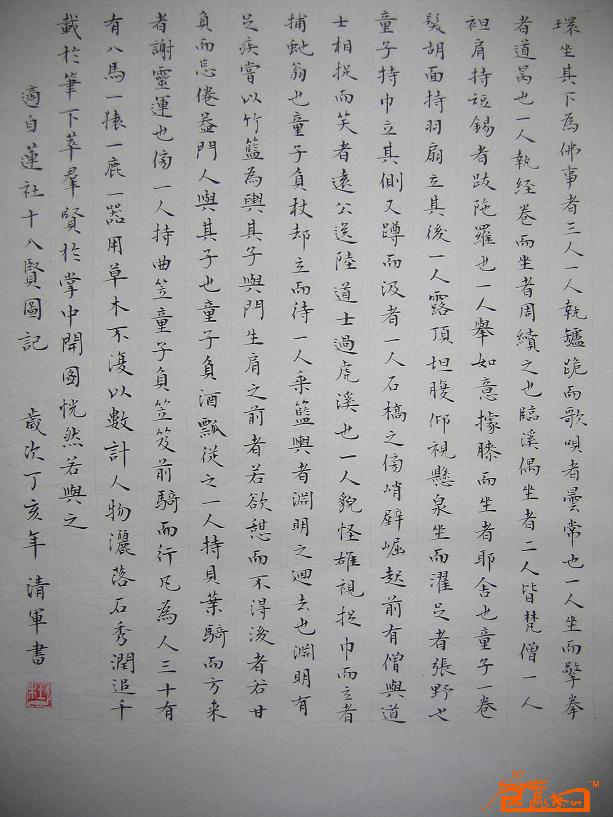 環坐其下為佛事者三人一人執鑪跪而歌唄者曇常也一人坐而擎拳
者道昺也一人執經卷而坐者周續之也臨溪偶坐者二人皆梵僧一人
袒肩持短錫者跋陁羅也一人舉如意據膝而坐者耶舍也童子一卷
髮胡面持羽扇立其後一人露頂坦腹仰視懸泉坐而濯足者張野也
童子持巾立其側又蹲而汲者一人石橋之傍峭壁崛起前有僧與道
士相捉而笑者遠公送陸道士過虎溪也一人貌怪雄視捉巾而立者
捕虵翁也童子負杖却立而待一人乘籃輿者淵明之迴去也淵明有
足疾嘗以竹籃為輿其子與門生肩之前者若欲憩而不得後者若甘
負而忘倦蓋門人與其子也童子負酒瓢從之一人持貝葉騎而方來
者謝靈運也傍一人持曲笠童子負笠笈前騎而行凡為人三十有
有八馬一猿一鹿一器用草木不復以數計人物灑落石秀潤追千
載於筆下萃羣賢於掌中開圖恍然若與之
適白蓮社十八賢圖記 歲次丁亥年 清軍書